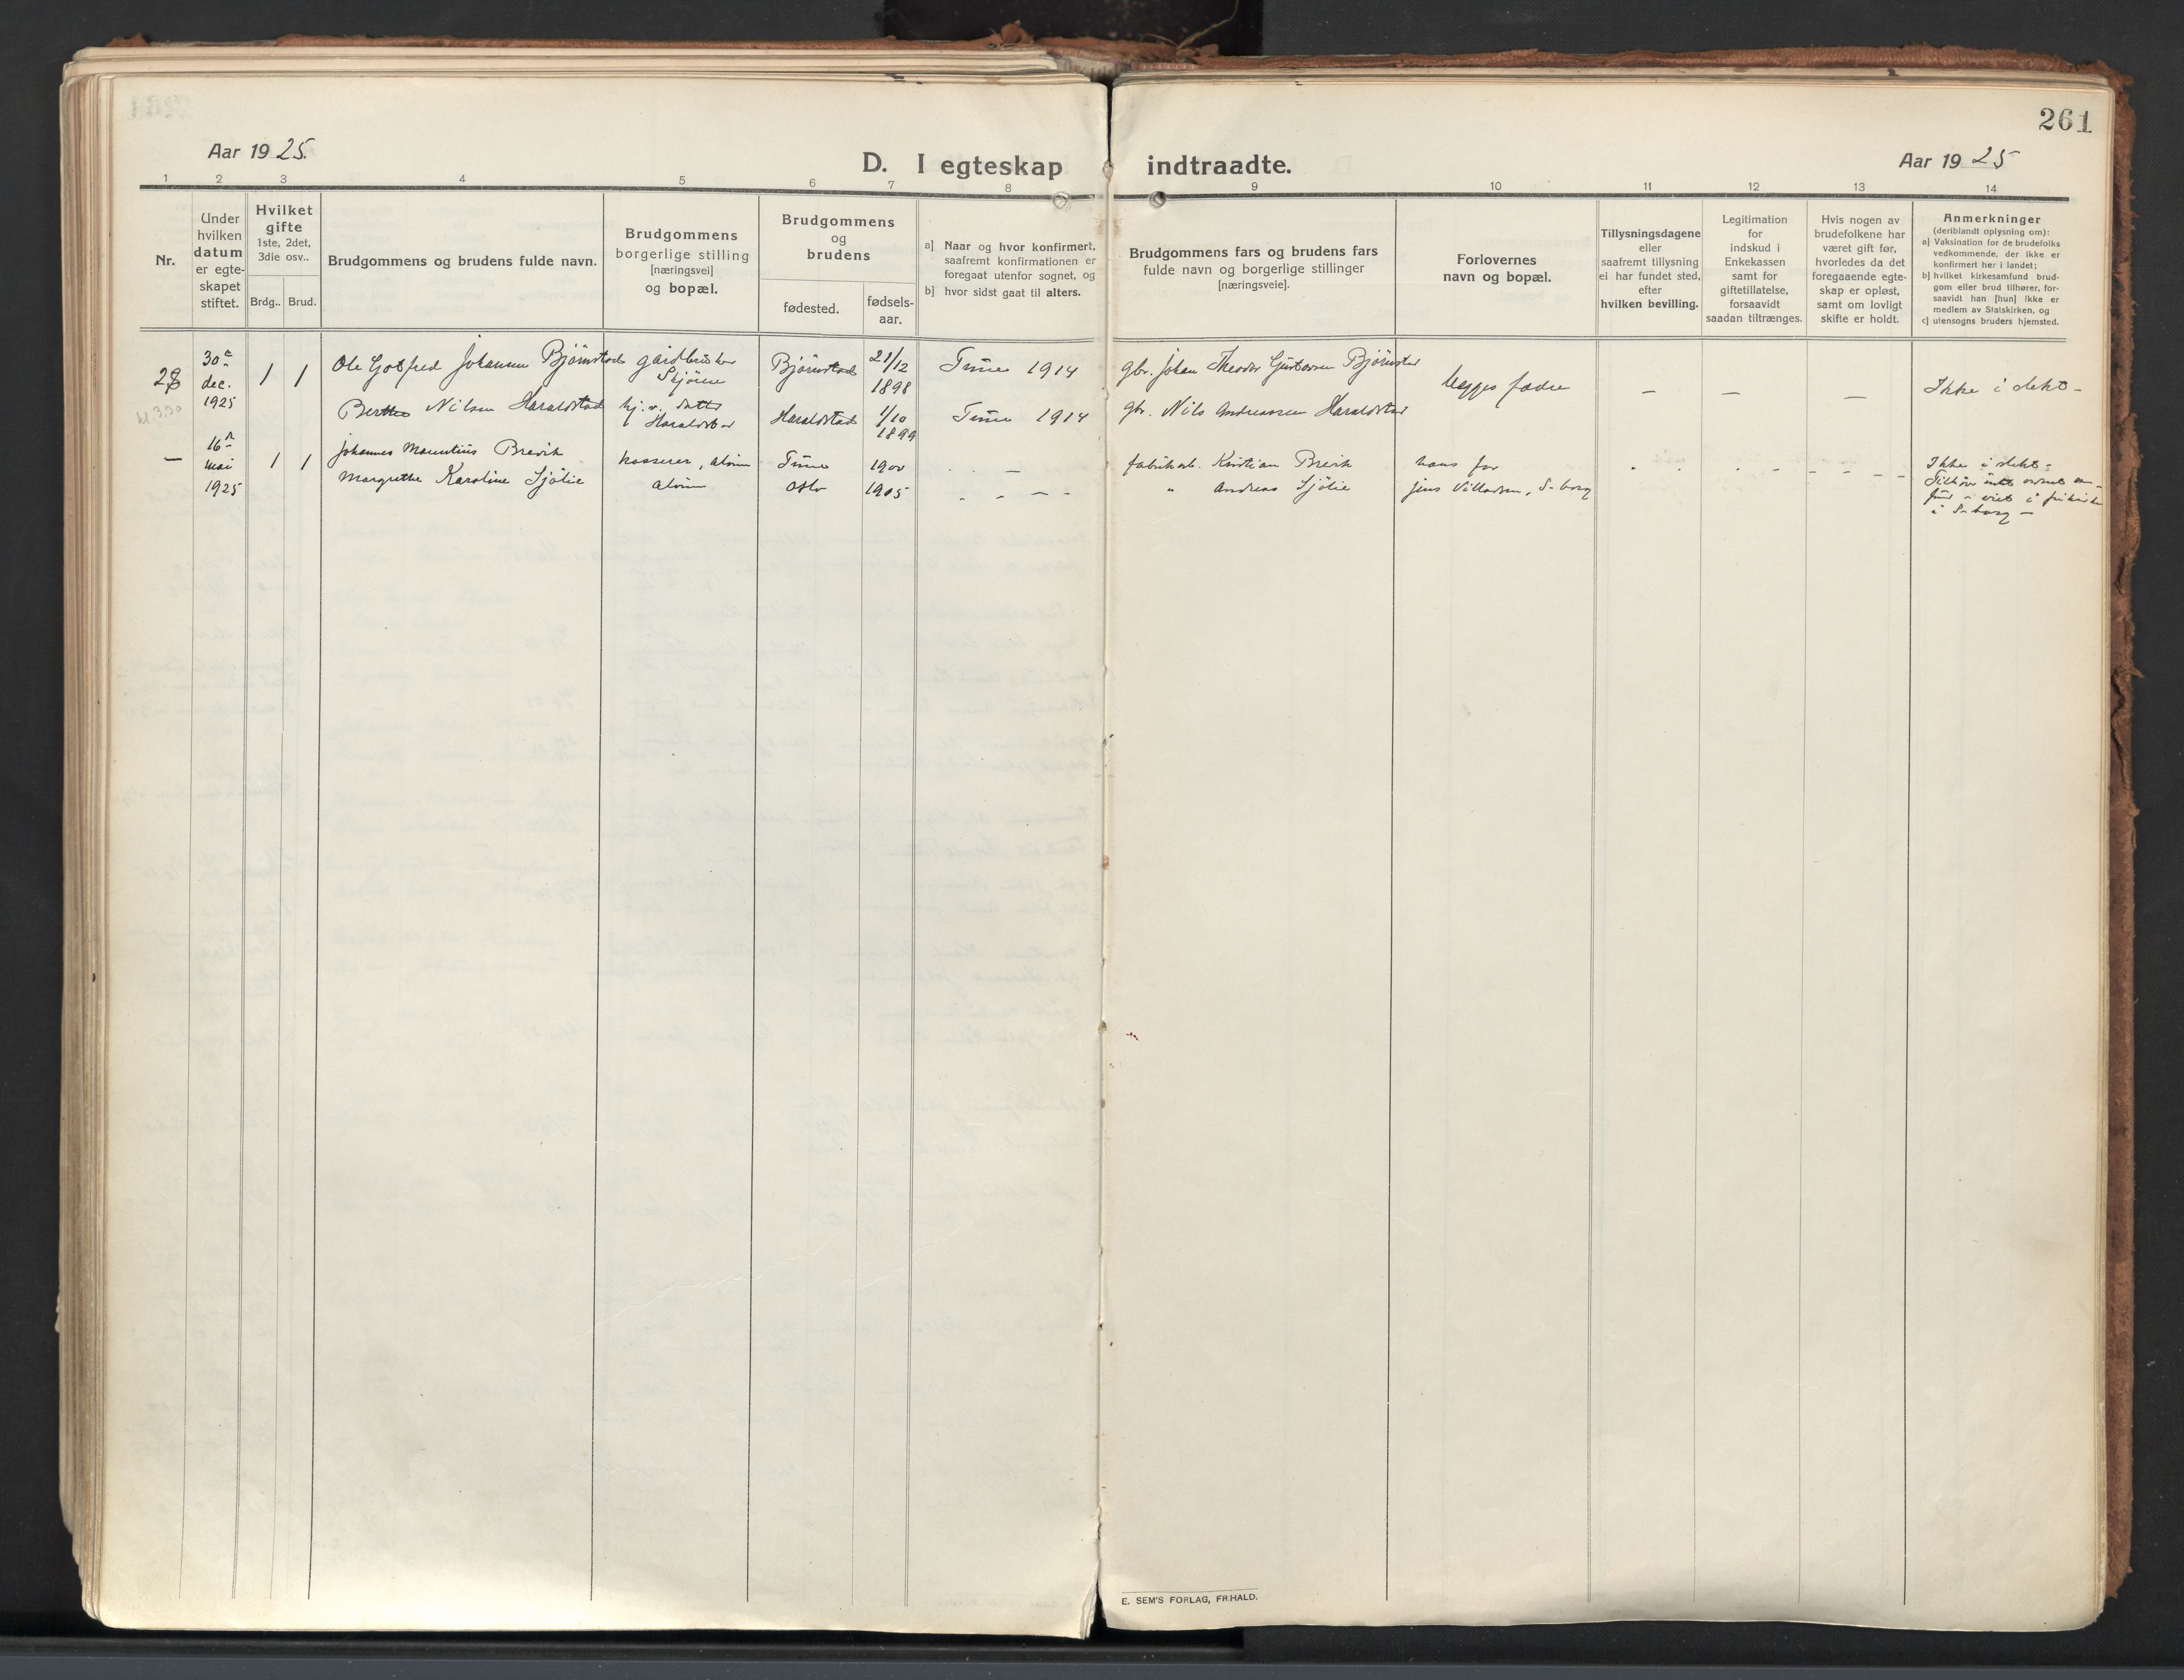 261
Aar 1925.
D. I egteskap indtraadte.
Aar 1925
1 2 3 4 5 6 7 8 9 10 11 12 13 14
Nr.
Under
hvilken
datum
er egte-
skapet
stiftet.
Hvilket
gifte
1ste, 2det,
3die osv..
Brdg.. Brud.
Brudgommens og brudens fulde navn.
Brudgommens
borgerlige stilling
[næringsvei]
og bopæl.
Brudgommens
og
brudens
fødested.
fødsels-
aar.
a] Naar og hvor konfirmert,
saafremt konfirmationen er
foregaat utenfor sognet, og
b] hvor sidst gaat til alters.
Brudgommens fars og brudens fars
fulde navn og borgerlige stillinger
[næringsveie].
Forlovernes
navn og bopæl.
Tillysningsdagene
eller
saafremt tillysning
ei har fundet sted,
efter
hvilken bevilling.
Legitimation
for
indskud i
Enkekassen
samt for
giftetillatelse,
forsaavidt
saadan tiltrænges.
Hvis nogen av
brudefolkene har
været gift før,
hvorledes da det
foregaaende egte-
skap er opløst,
samt om lovligt
skifte er holdt.
Anmerkninger
(deriblandt oplysning om):
a] Vaksination for de brudefolks
vedkommende, der ikke er
konfirmert her i landet;
b] hvilket kirkesamfund brud-
gom eller brud tilhører, for-
saavidt han [hun] ikke er
medlem av Statskirken, og
c] utensogns bruders hjemsted.
28
kl 3.30
30te
dec.
1925
1 1
Ole Gotfred Johansen Bjørnstad
gårdbruker
Bjørnstad
21/12
1898
Tune 1914
gbr. Johan Theodor Gustavsen Bjørnstad
begges fædre
— — —
Ikke i slekt -
Berthe Nilsen Haraldstad
hj. v. datter
Haraldstad
Haraldstad
1/10
1899
Tune 1914
gbr. Nils Andreassen Haraldstad
—
16de
mai
1925
1 1
Johannes Mauritius Brevik
kasserer, Alvim
Tune
1900
fabrikarb. Kristian Brevik
hans far
Ikke i slekt -
Margrethe Karoline Sjølie
Alvim
Oslo
1905
" Andreas Sjølie
Jens Villadsen, S-borg
i S-borg —
E. SEM'S FORLAG, FR.HALD.